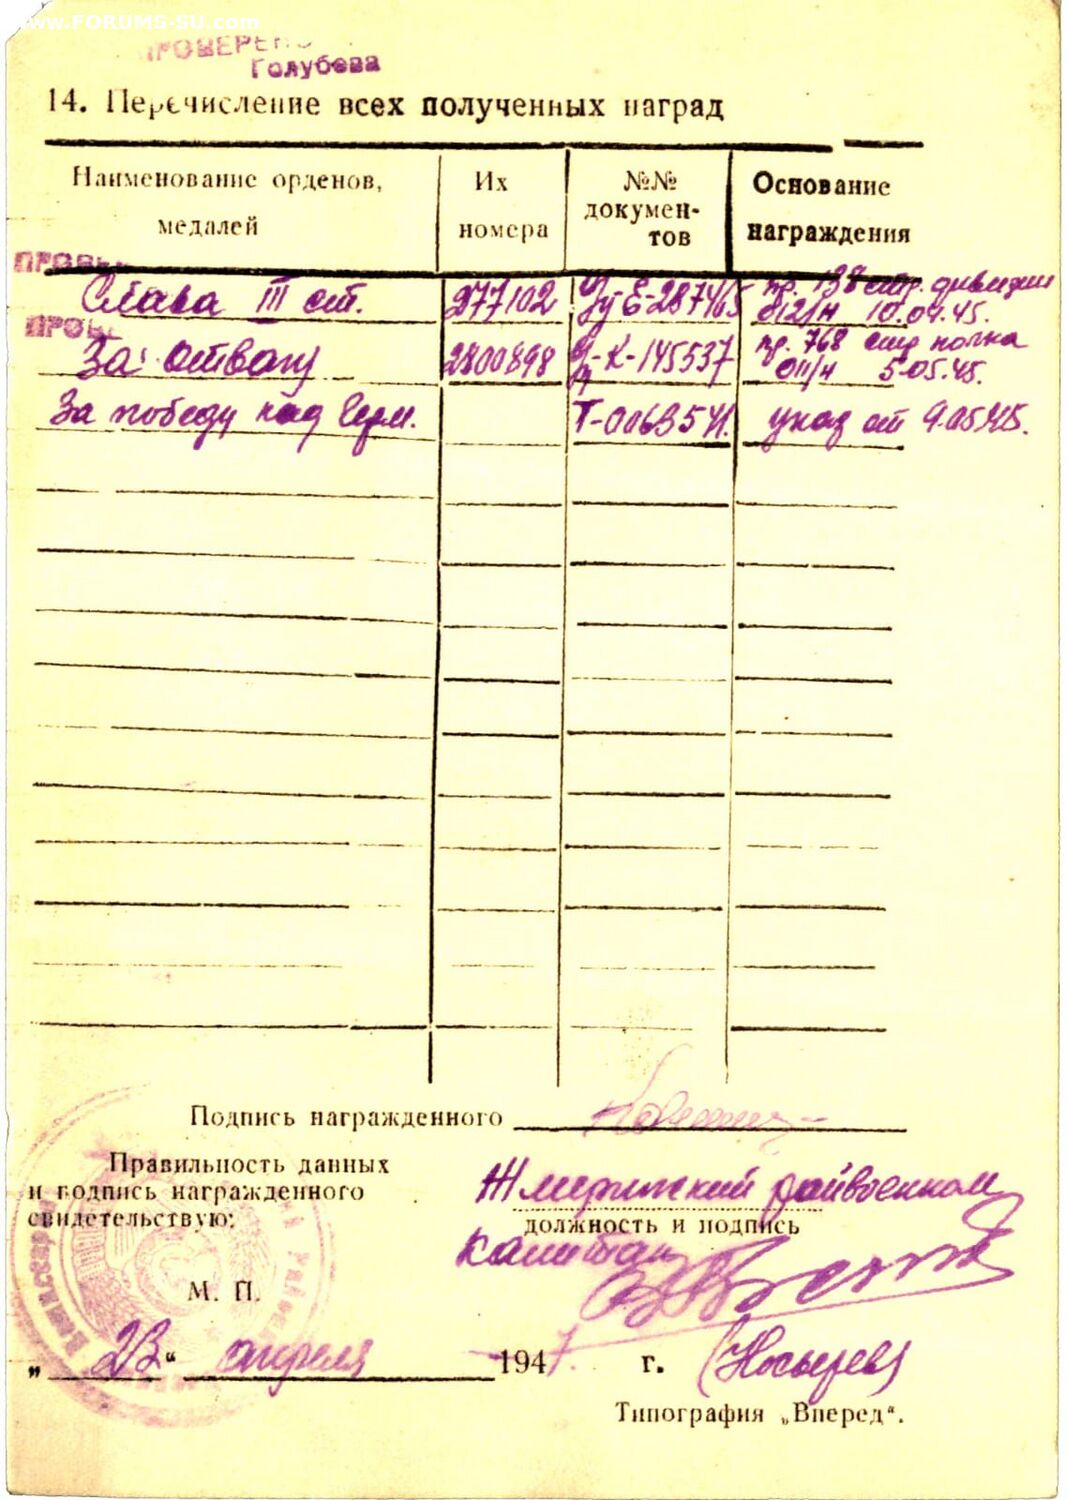 www.FORUMS-SU.com
ПРОВЕРЕНО
Голубева
14. Перечисление всех полученных наград
Наименование орденов, медалей
Их номера
№№ документов
Основание награждения
Слава III ст. 277102 Е-287465 пр. 138 стр. дивизии 012/н 10.04.45.
За отвагу 2800898 К-145537 пр. 768 стр полка 011/н 5.05.45.
За победу над Герм. указ от 9.05.45.
Подпись награжденного
Правильность данных
и подпись награжденного
свидетельствую:
райвоенком
должность и подпись
капитан
М. П.
„ 23 “ апреля 1947 г.
Типография „Вперед“.